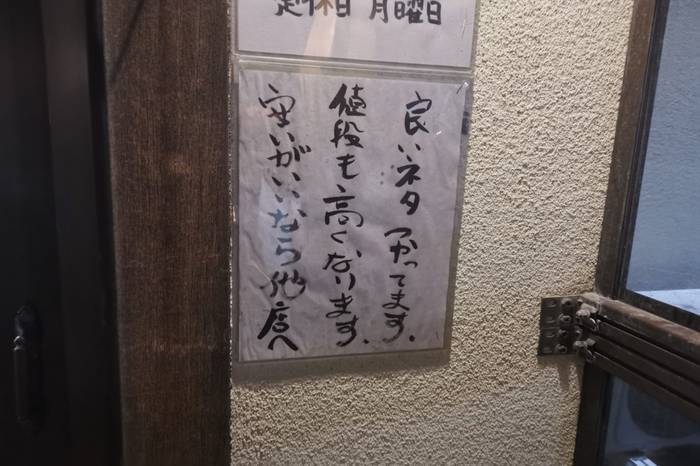 定休日 月曜日
良いネタ使ってます.
値段も高くなります.
安いがいいなら他店へ